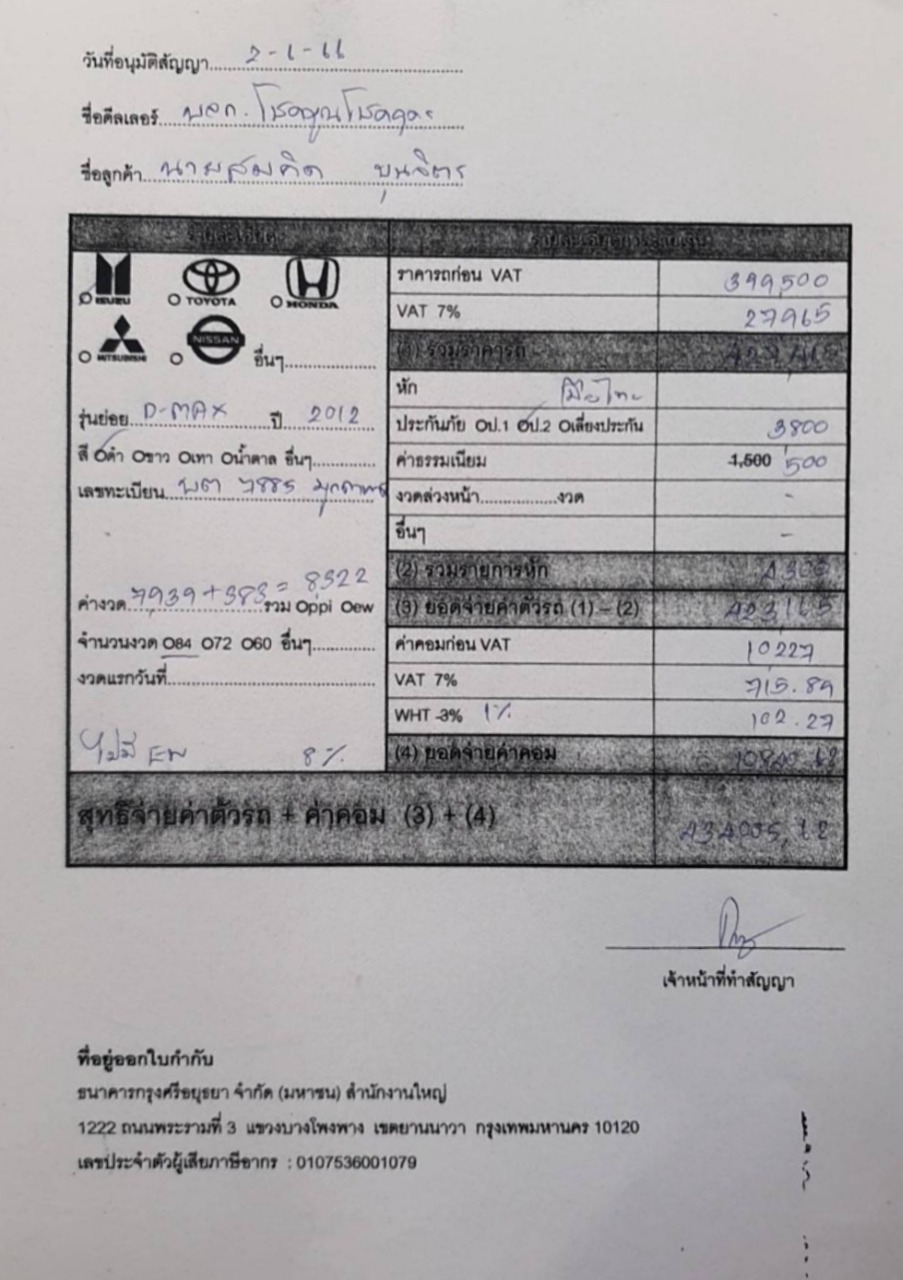 วันที่อนุมัติสัญญา 2-6-66
ชื่อดีลเลอร์
ชื่อลูกค้า นายสมคิด บุนจิตร
รายละเอียด รายละเอียดการจ่ายเงิน
ISUZU TOYOTA HONDA
MITSUBISHI NISSAN อื่นๆ
รุ่นย่อย D-MAX ปี 2012
สี ดำ ขาว เทา น้ำตาล อื่นๆ
เลขทะเบียน 7885
ค่างวด 7939+383= 8322 รวม ppi ew
จำนวนงวด 84 72 60 อื่นๆ
งวดแรกวันที่
ไม่มี EW 8%
ราคารถก่อน VAT 399,500
VAT 7% 27965
(1) รวมราคารถ
หัก
ประกันภัย ป.1 ป.2 เลี่ยงประกัน 3800
ค่าธรรมเนียม 1,500 500
งวดล่วงหน้า งวด -
อื่นๆ -
(2) รวมรายการหัก 4300
(3) ยอดจ่ายค่าตัวรถ (1) – (2) 423,165
ค่าคอมก่อน VAT 10,227
VAT 7% 715.89
WHT -3% 1% 102.27
(4) ยอดจ่ายค่าคอม 10840.62
สุทธิจ่ายค่าตัวรถ + ค่าคอม (3) + (4) 434005,62
เจ้าหน้าที่ทำสัญญา
ที่อยู่ออกใบกำกับ
ธนาคารกรุงศรีอยุธยา จำกัด (มหาชน) สำนักงานใหญ่
1222 ถนนพระรามที่ 3 แขวงบางโพงพาง เขตยานนาวา กรุงเทพมหานคร 10120
เลขประจำตัวผู้เสียภาษีอากร : 0107536001079